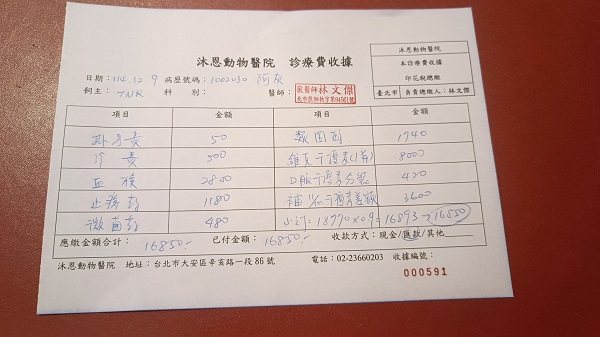 沐恩動物醫院 診療費收據
沐恩動物醫院
本診療費收據
印花稅總繳
臺北市 負責總繳人：林文傑
日期：114.12.9 病歷號碼：1002030 阿灰
飼主：TNR 科 別： 醫師： 獸醫師林文傑
項目 金額 項目 金額
掛號費 50 類固醇 1740
診費 500 8000
血檢 2800 口服干擾素分裝 420
止痛彭 1180 補 干擾素差額 3600
480 小計：18770x0.9=16893→16850
應繳金額合計：16850.- 已付金額：16850.- 收款方式：現金/匯款/其他
沐恩動物醫院 地址：台北市大安區辛亥路一段86號 電話：02-23660203 收據編號：
000591